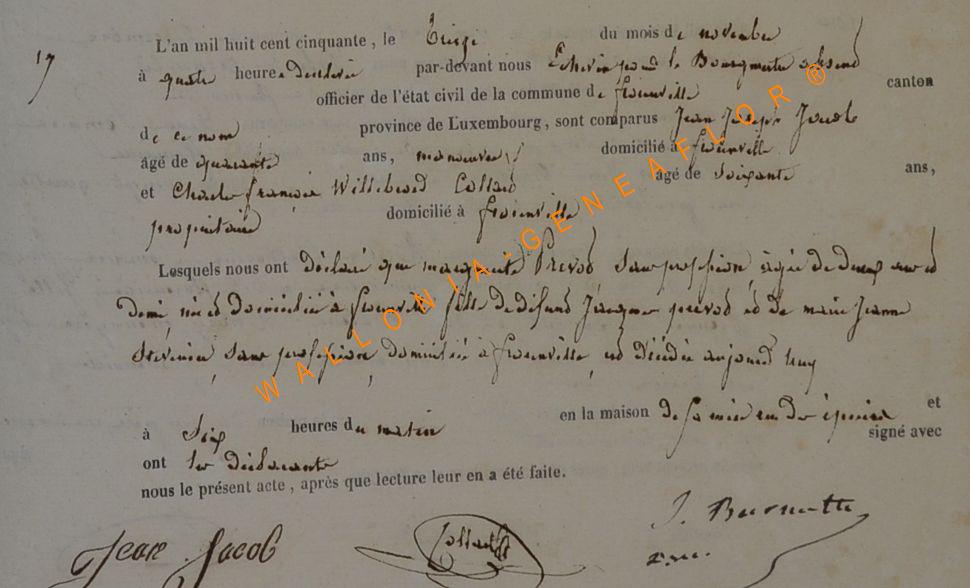 17
L'an mil huit cent cinquante, le treize du mois de novembre
à quatre heures de relevée par-devant nous Echevin pour le Bourgmestre absent
officier de l'état civil de la commune de Froenville canton
de ce nom province de Luxembourg, sont comparus Jean Joseph Jacob
âgé de quarante ans, manouvrier domicilié à Froenville
et Charles françois Willebrord Collard âgé de soixante ans,
propriétaire domicilié à froenville
Lesquels nous ont déclaré que marguerite Prevot sans profession âgée de deux ans et
demi née et domiciliée à froenville fille de défunt Jacques prevot et de marie Jeanne
Stevenin sans profession domiciliée à froenville est décédée aujourd'huy
à Six heures du matin en la maison de sa mère et
ont les déclarants signé avec
nous le présent acte, après que lecture leur en a été faite.
Jean Jacob Collard J. Burnotte
WALLONIA-GENEAFLOR ®